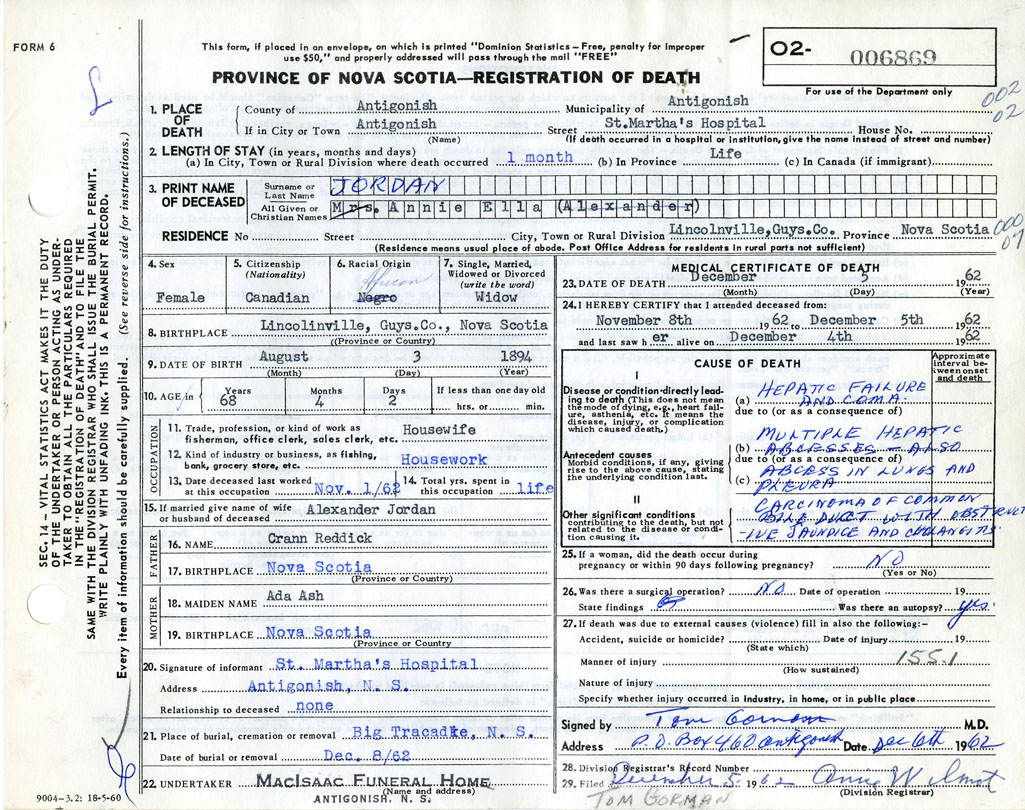 FORM 6
This form, if placed in an envelope, on which is printed "Dominion Statistics – Free, penalty for improper
use $50," and properly addressed will pass through the mail "FREE"
PROVINCE OF NOVA SCOTIA—REGISTRATION OF DEATH
O2- 006869
For use of the Department only
002
02
SEC. 14 – VITAL STATISTICS ACT MAKES IT THE DUTY
OF THE UNDERTAKER OR PERSON ACTING AS UNDER-
TAKER TO OBTAIN ALL THE PARTICULARS REQUIRED
IN THE "REGISTRATION OF DEATH" AND TO FILE THE
SAME WITH THE DIVISION REGISTRAR WHO SHALL ISSUE THE BURIAL PERMIT.
WRITE PLAINLY WITH UNFADING INK. THIS IS A PERMANENT RECORD.
Every item of information should be carefully supplied. (See reverse side for instructions.)
1. PLACE OF DEATH
County of Antigonish Municipality of Antigonish
If in City or Town Antigonish Street St.Martha's Hospital House No.
(Name) (If death occurred in a hospital or institution, give the name instead of street and number)
2. LENGTH OF STAY (in years, months and days)
(a) In City, Town or Rural Division where death occurred 1 month (b) In Province Life (c) In Canada (if immigrant)
3. PRINT NAME OF DECEASED
Surname or Last Name JORDAN
All Given or Christian Names Mrs. Annie Ella (Alexander)
RESIDENCE No Street City, Town or Rural Division Lincolnville,Guys.Co. Province Nova Scotia
000
07
(Residence means usual place of abode. Post Office Address for residents in rural parts not sufficient)
4. Sex Female
5. Citizenship (Nationality) Canadian
6. Racial Origin African Negro
7. Single, Married, Widowed or Divorced (write the word) Widow
8. BIRTHPLACE Lincolinville, Guys.Co., Nova Scotia
(Province or Country)
9. DATE OF BIRTH August 3 1894
(Month) (Day) (Year)
10. AGE in Years 68 Months 4 Days 2 If less than one day old hrs. or min.
OCCUPATION
11. Trade, profession, or kind of work as
fisherman, office clerk, sales clerk, etc. Housewife
12. Kind of industry or business, as fishing,
bank, grocery store, etc. Housework
13. Date deceased last worked
at this occupation Nov. 1/62
14. Total yrs. spent in
this occupation life
15. If married give name of wife
or husband of deceased Alexander Jordan
FATHER
16. NAME Crann Reddick
17. BIRTHPLACE Nova Scotia
(Province or Country)
MOTHER
18. MAIDEN NAME Ada Ash
19. BIRTHPLACE Nova Scotia
(Province or Country
20. Signature of informant St. Martha's Hospital
Address Antigonish, N. S.
Relationship to deceased none
21. Place of burial, cremation or removal Big Tracadke, N. S.
Date of burial or removal Dec. 8/62
22. UNDERTAKER MACISAAC FUNERAL HOME
(Name and address)
ANTIGONISH, N. S.
9004-3.2: 18-5-60
MEDICAL CERTIFICATE OF DEATH
23. DATE OF DEATH December 5 1962
(Month) (Day) (Year)
24. I HEREBY CERTIFY that I attended deceased from:
November 8th 1962 to December 5th 1962
and last saw h er alive on December 4th 1962
CAUSE OF DEATH
Approximate interval between onset and death
I
Disease or condition directly lead-
ing to death (This does not mean
the mode of dying, e.g., heart fail-
ure, asthenia, etc. It means the
disease, injury, or complication
which caused death.)
(a) HEPATIC FAILURE
AND COMA.
due to (or as a consequence of)
Antecedent causes
Morbid conditions, if any, giving
rise to the above cause, stating
the underlying condition last.
MULTIPLE HEPATIC
(b) ABCESSES – ALSO
due to (or as a consequence of)
ABCESS IN LUNGS AND
(c) PLEURA
II
Other significant conditions
contributing to the death, but not
related to the disease or condi-
tion causing it.
CARCINOMA OF COMMON
BILE DUCT WITH OBSTRUCT
-IVE JAUNDICE AND CHOLANGITIS
25. If a woman, did the death occur during
pregnancy or within 90 days following pregnancy? NO
(Yes or No)
26. Was there a surgical operation? NO Date of operation 19
State findings Was there an autopsy? yes.
27. If death was due to external causes (violence) fill in also the following:–
Accident, suicide or homicide? Date of injury 19
(State which)
Manner of injury 155.1
(How sustained)
Nature of injury
Specify whether injury occurred in industry, in home, or in public place
Signed by Tom Gorman M.D.
Address P.O. Box 460 Antigonish Date Dec 6th 1962
28. Division Registrar's Record Number
29. Filed December 5, 1962 Anna Wilmot
(Division Registrar)
TOM GORMAN